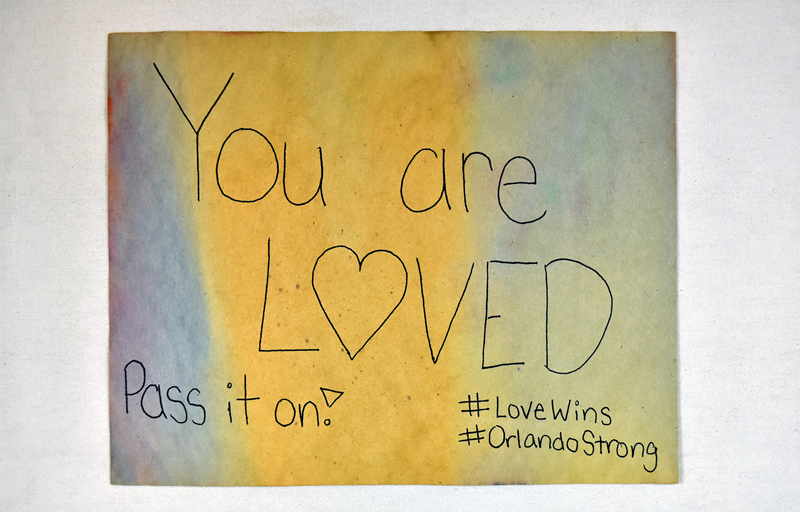 You are
L♡VED
Pass it on!
#LoveWins
#OrlandoStrong